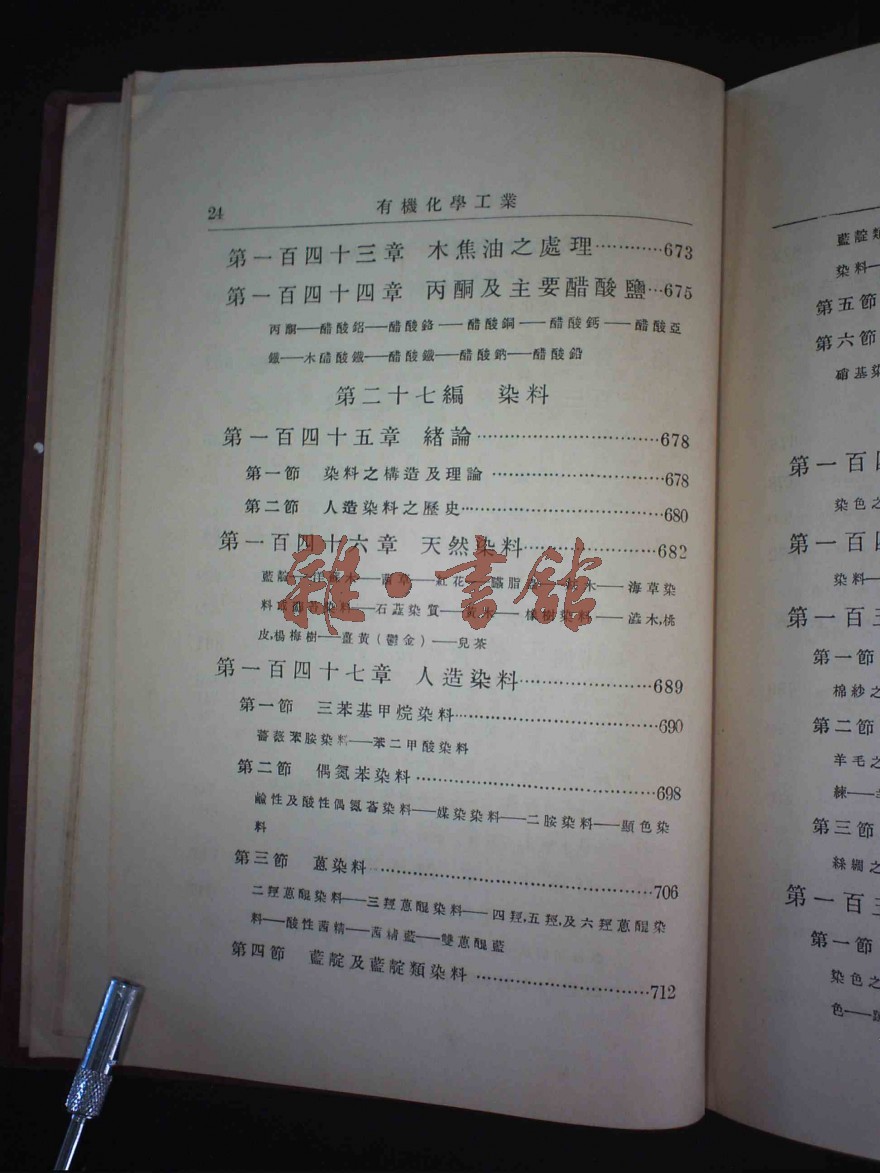 24
有機化學工業
第一百四十三章 木焦油之處理…………673
第一百四十四章 丙酮及主要醋酸鹽…675
丙酮——醋酸鋁——醋酸鉻——醋酸銅——醋酸鈣——醋酸亞
鐵——木醋酸鐵——醋酸鐵——醋酸鈉——醋酸鉛
第二十七編 染料
第一百四十五章 緒論……………………………678
第一節 染料之構造及理論……………………………678
第二節 人造染料之歷史……………………………680
第一百四十六章 天然染料……………………682
藍靛——木——茜草——紅花——脂——木——海草染
料——石蕊染質——染料——木,桃
皮,楊梅樹——薑黃(鬱金)——兒茶
雜·書館
第一百四十七章 人造染料……………………689
第一節 三苯基甲烷染料……………………………690
薔薇苯胺染料——苯二甲酸染料
第二節 偶氮苯染料……………………………698
鹼性及酸性偶氮染料——媒染染料——二胺染料——顯色染
料
第三節 蒽染料……………………………706
二羥蒽醌染料——三羥蒽醌染料——四羥,五羥,及六羥蒽醌染
料——酸性茜精——茜精藍——雙蒽醌藍
第四節 藍靛及藍靛類染料……………………712
藍靛類
染料—
第五節
第六節
硝基染
第一百
染色之
第一百
染料—
第一百五
第一節
棉紗之
第二節
羊毛之
練——
第三節
絲綢之
第一百五
第一節
染色之
色——